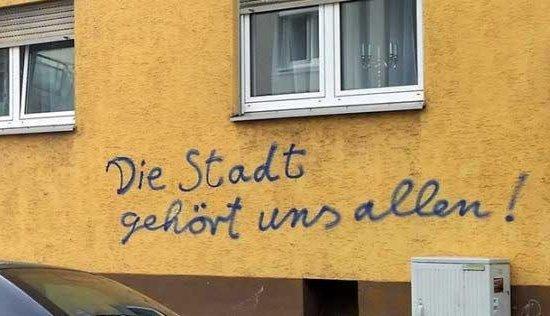 Die Stadt
gehört uns allen!